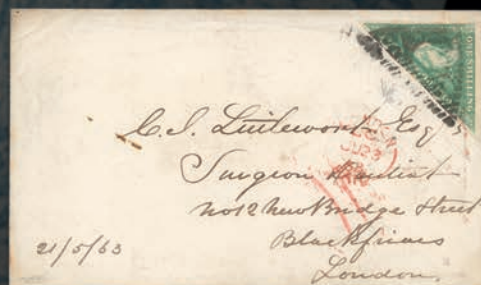 ONE SHILLING
C. S. Littlewort Esq
Surgeon Dentist
No 12 New Bridge Street
Blackfriars
London.
21/5/63